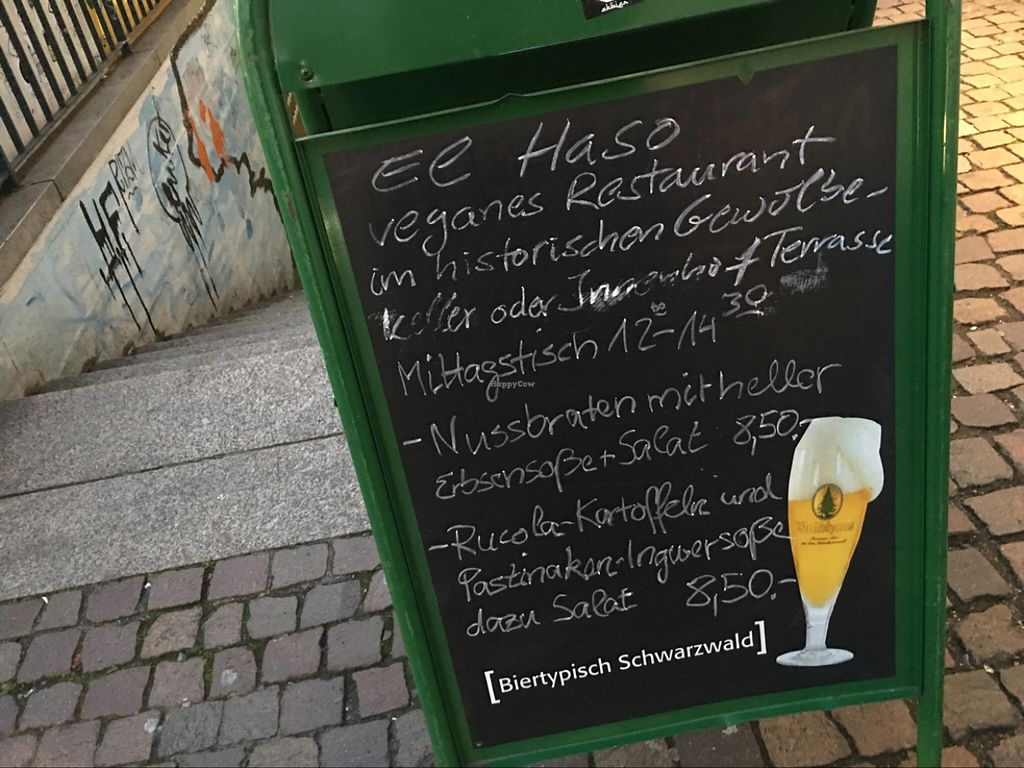 El Haso
veganes Restaurant
im historischen Gewölbe-
keller oder Innenhof Terrasse
Mittagstisch 12⁰⁰-14³⁰
HappyCow
- Nussbraten mit heller
Erbsensoße + Salat 8,50.-
- Rucola-Kartoffeln und
Pastinaken-Ingwersoße
dazu Salat 8,50.-
[Biertypisch Schwarzwald]